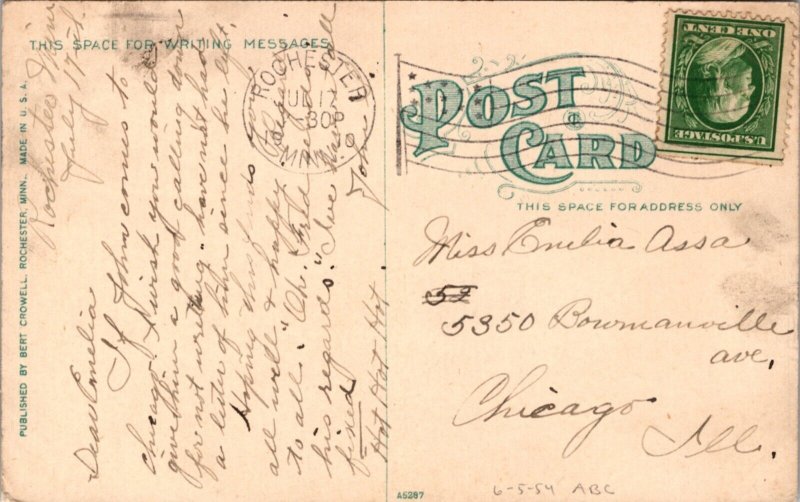 THIS SPACE FOR WRITING MESSAGES
Rochester Minn
July 17th
Dear Emelia
If John comes to
Chicago I wish you would
give him a good calling down
for not writing, have not had
a letter of him since he left,
Hoping this finds you
all well & happy.
to all. "Oh.
his regards." Ive
Hot Hot Hot
John
PUBLISHED BY BERT CROWELL, ROCHESTER, MINN. MADE IN U.S.A.
ROCHESTER
JUL 17
30P
MINN.
POST
CARD
THIS SPACE FOR ADDRESS ONLY
U.S. POSTAGE
ONE CENT
Miss Emelia Assa
52
5350 Bowmanville
ave,
Chicago
Ill.
A5287
6-5-54 ABC